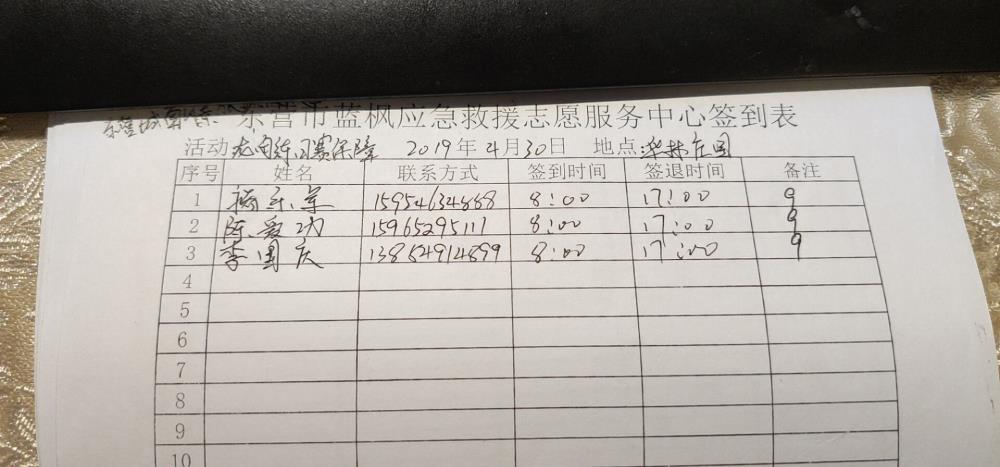 东营市蓝枫应急救援志愿服务中心签到表
活动 2019年4月30日 地点
序号 姓名 联系方式 签到时间 签退时间 备注
1 15954634868 8:00 17:00 9
2 陈 功 15965295111 8:00 17:00 9
3 李国庆 13864914899 8:00 17:00 9
4
5
6
7
8
9
10